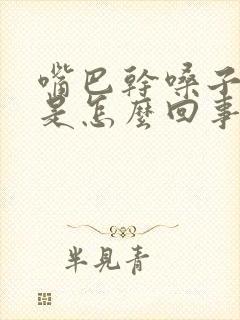 嘴巴幹嗓子
是怎麼回事
半見青